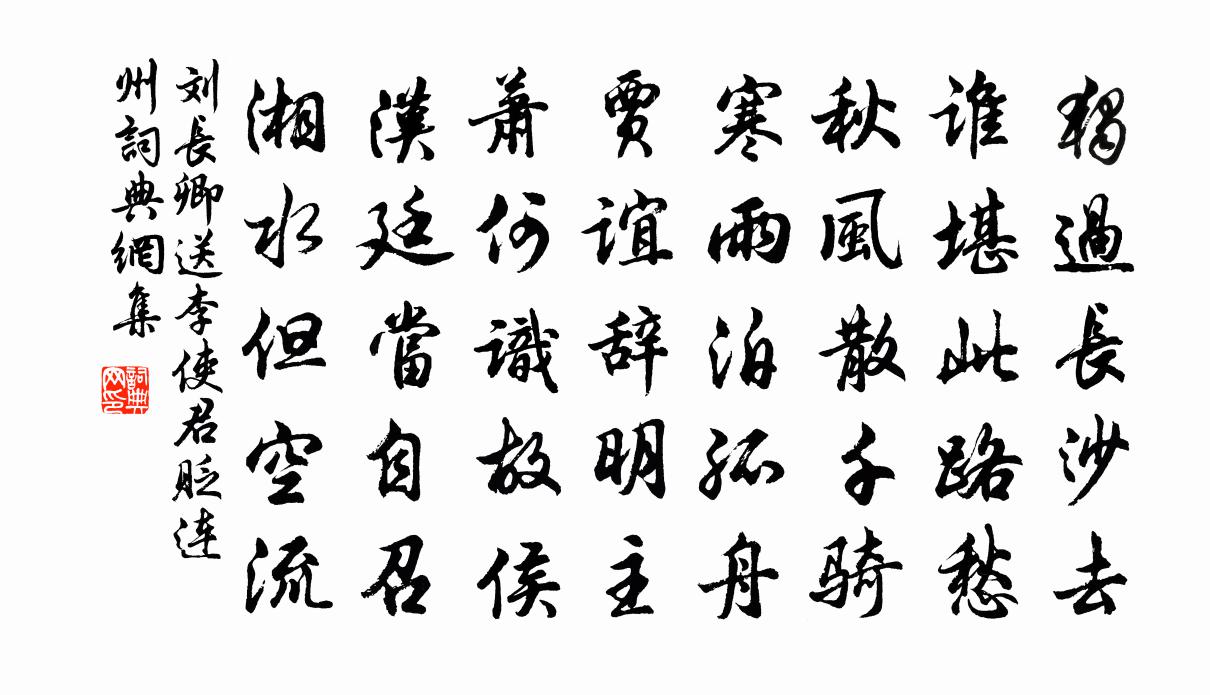 獨過長沙去
誰堪此路愁
秋風散千騎
寒雨泊孤舟
賈誼辞明主
蕭何識故侯
漢廷當自召
湘水但空流
刘長卿送李使君貶连
州詞典網集
詞典
网印